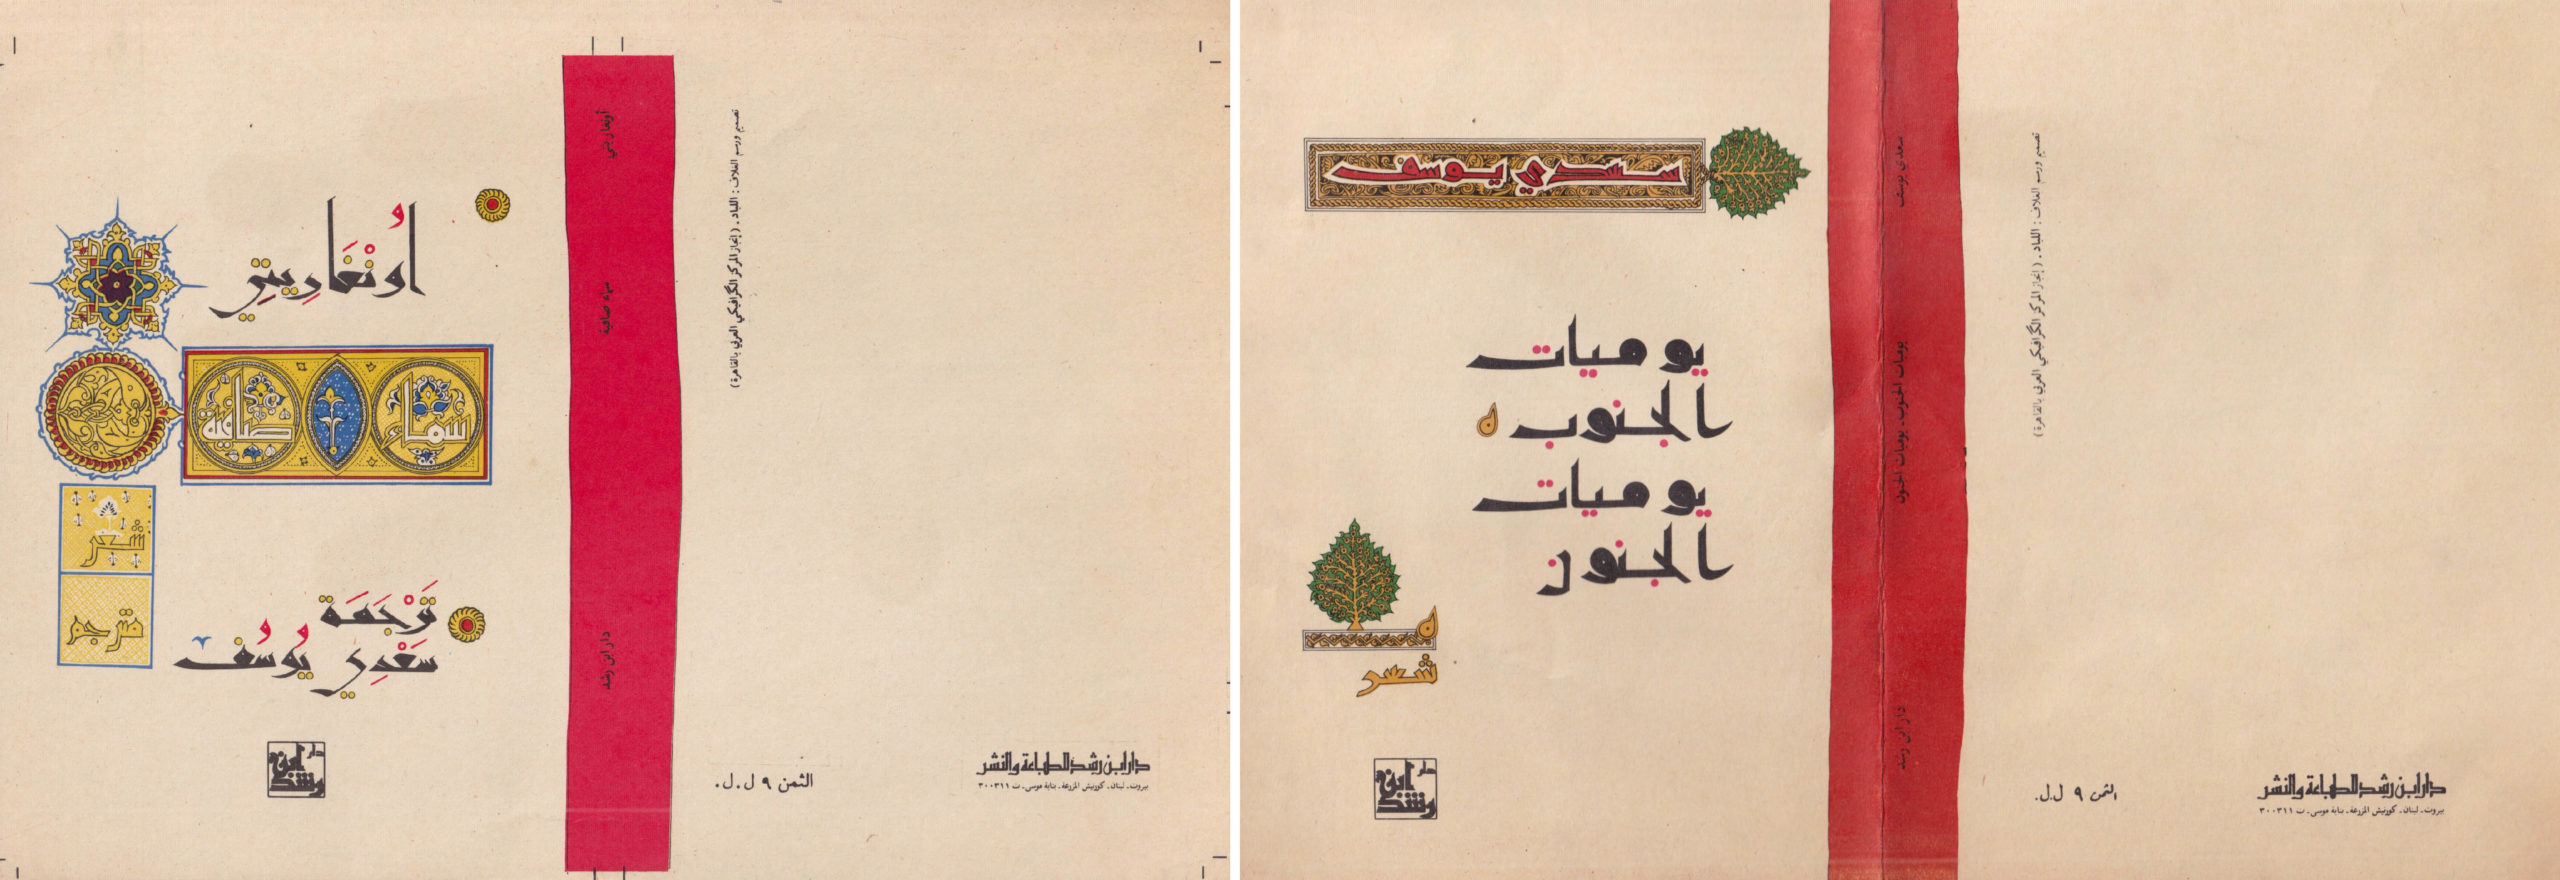 اُونْغَارِيتِّي
سماء صافية
شعر
مترجم
تَرْجَمَة
سَعْدِي يُوسُف
دار ابن رشد
أونغاريتي
سماء صافية
دار ابن رشد
تصميم ورسم الغلاف : اللباد . (إنجاز المركز الگرافيكي العربي بالقاهرة)
الثمن ٩ ل.ل.
دار ابن رشد للطباعة والنشر
بيروت - لبنان - كورنيش المزرعة - بناية موسى - ت ٣٠٠٣١١
سعدي يوسف
يوميات
الجنوب
يوميات
الجنون
شعر
دار ابن رشد
سعدي يوسف
يوميات الجنوب - يوميات الجنون
دار ابن رشد
تصميم ورسم الغلاف : اللباد . (إنجاز المركز الگرافيكي العربي بالقاهرة)
الثمن ٩ ل.ل.
دار ابن رشد للطباعة والنشر
بيروت - لبنان - كورنيش المزرعة - بناية موسى - ت ٣٠٠٣١١